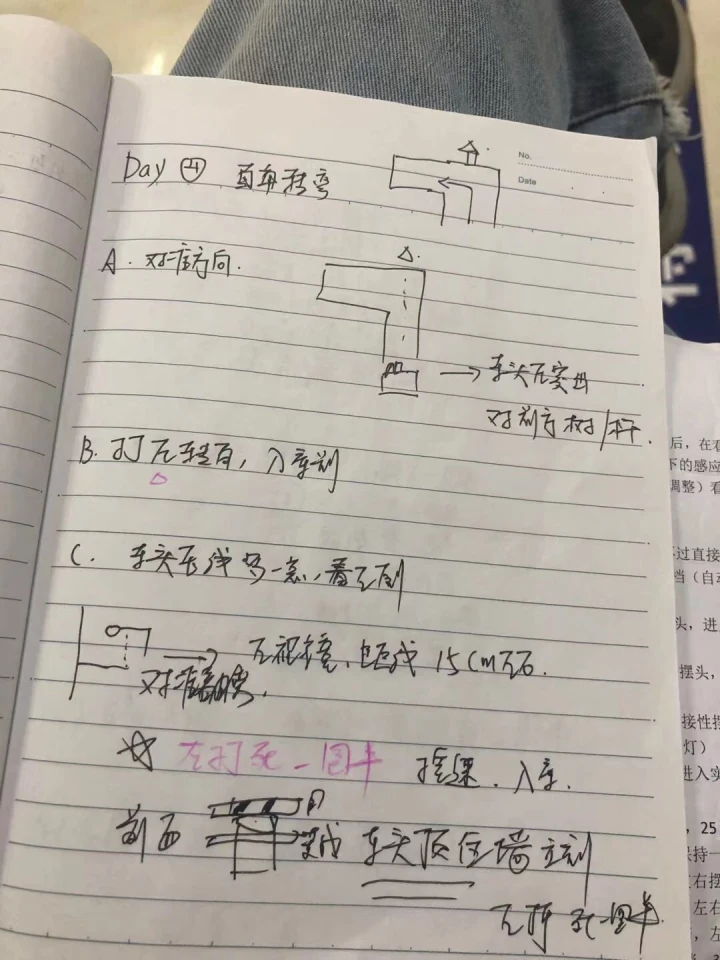 No.
Date
Day ④ 直角转弯
A. 对准方向.
→ 车头左突出
对前方树/杆.
B. 打左转向, 入库前
C. 车头压线多一点, 看左侧
左视镜, 距线 15cm左右.
对准
☆ 左打死一圈半 控速. 入库.
前面 车头顶住墙立刻
左打死一圈半
后, 在
下的感应
调整) 看
过直接
档 (自动
头, 进
摆头,
接性摆
灯)
进入实
, 25
保持一
左右摆
左右
, 左